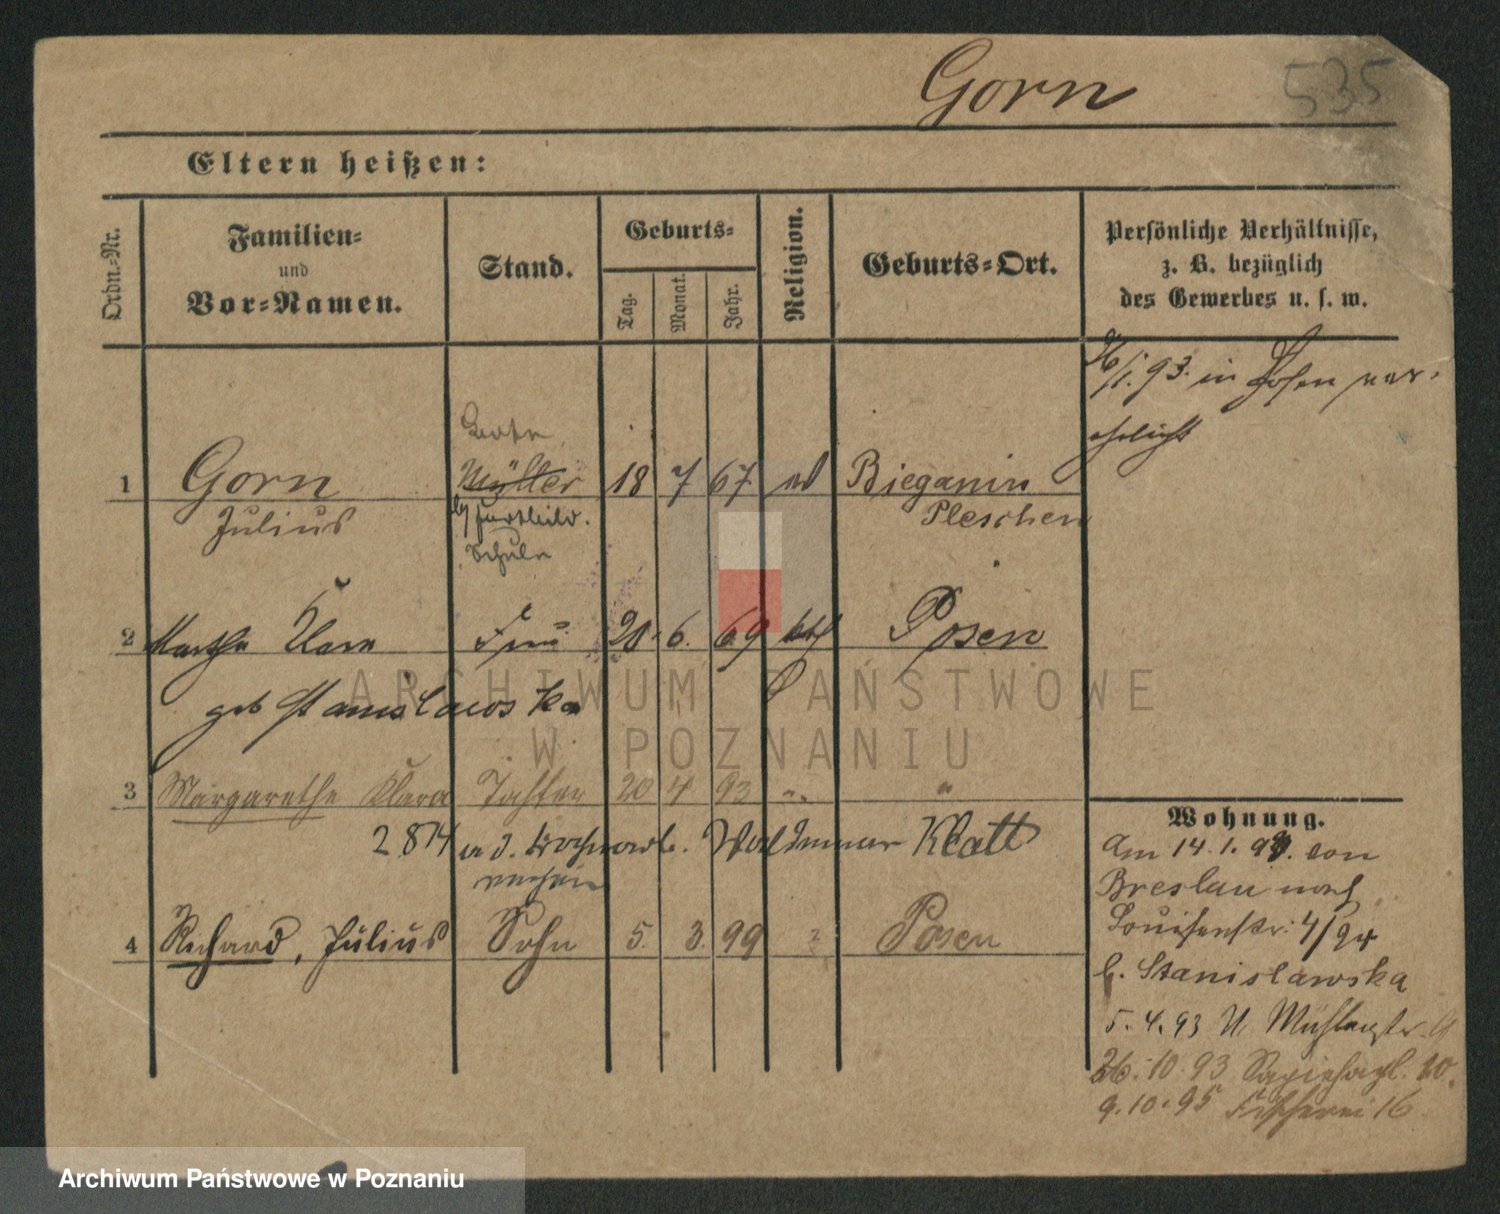 Gorn
535
Eltern heißen:
Ordn.-Nr.
Familien-
und
Vor-Namen.
Stand.
Geburts-
Tag.
Monat.
Jahr.
Religion.
Geburts-Ort.
Persönliche Verhältnisse,
z. B. bezüglich
des Gewerbes u. s. w.
26/1.93. in Posen ver-
ehelicht
1 Gorn Müller 18 7 67 ev Bieganin
Julius Pleschen
Schule
2 Martha Clara Frau 20. 6. 69 kth Posen
geb Stanislawska
3 Margarethe Klara Tochter 20 4 93 " "
2814 Waldemar Klatt
4 Richard, Julius Sohn 5. 3. 99 Posen
Wohnung.
Am 14.1.93. von
Breslau nach
Louisenstr. 4/
b. Stanislawska
5.4.93 U. Mühlenstr. 9
26.10.93 Sapiehapl. 10.
9.10.95 Fischerei 16
ARCHIWUM PAŃSTWOWE
W POZNANIU
Archiwum Państwowe w Poznaniu